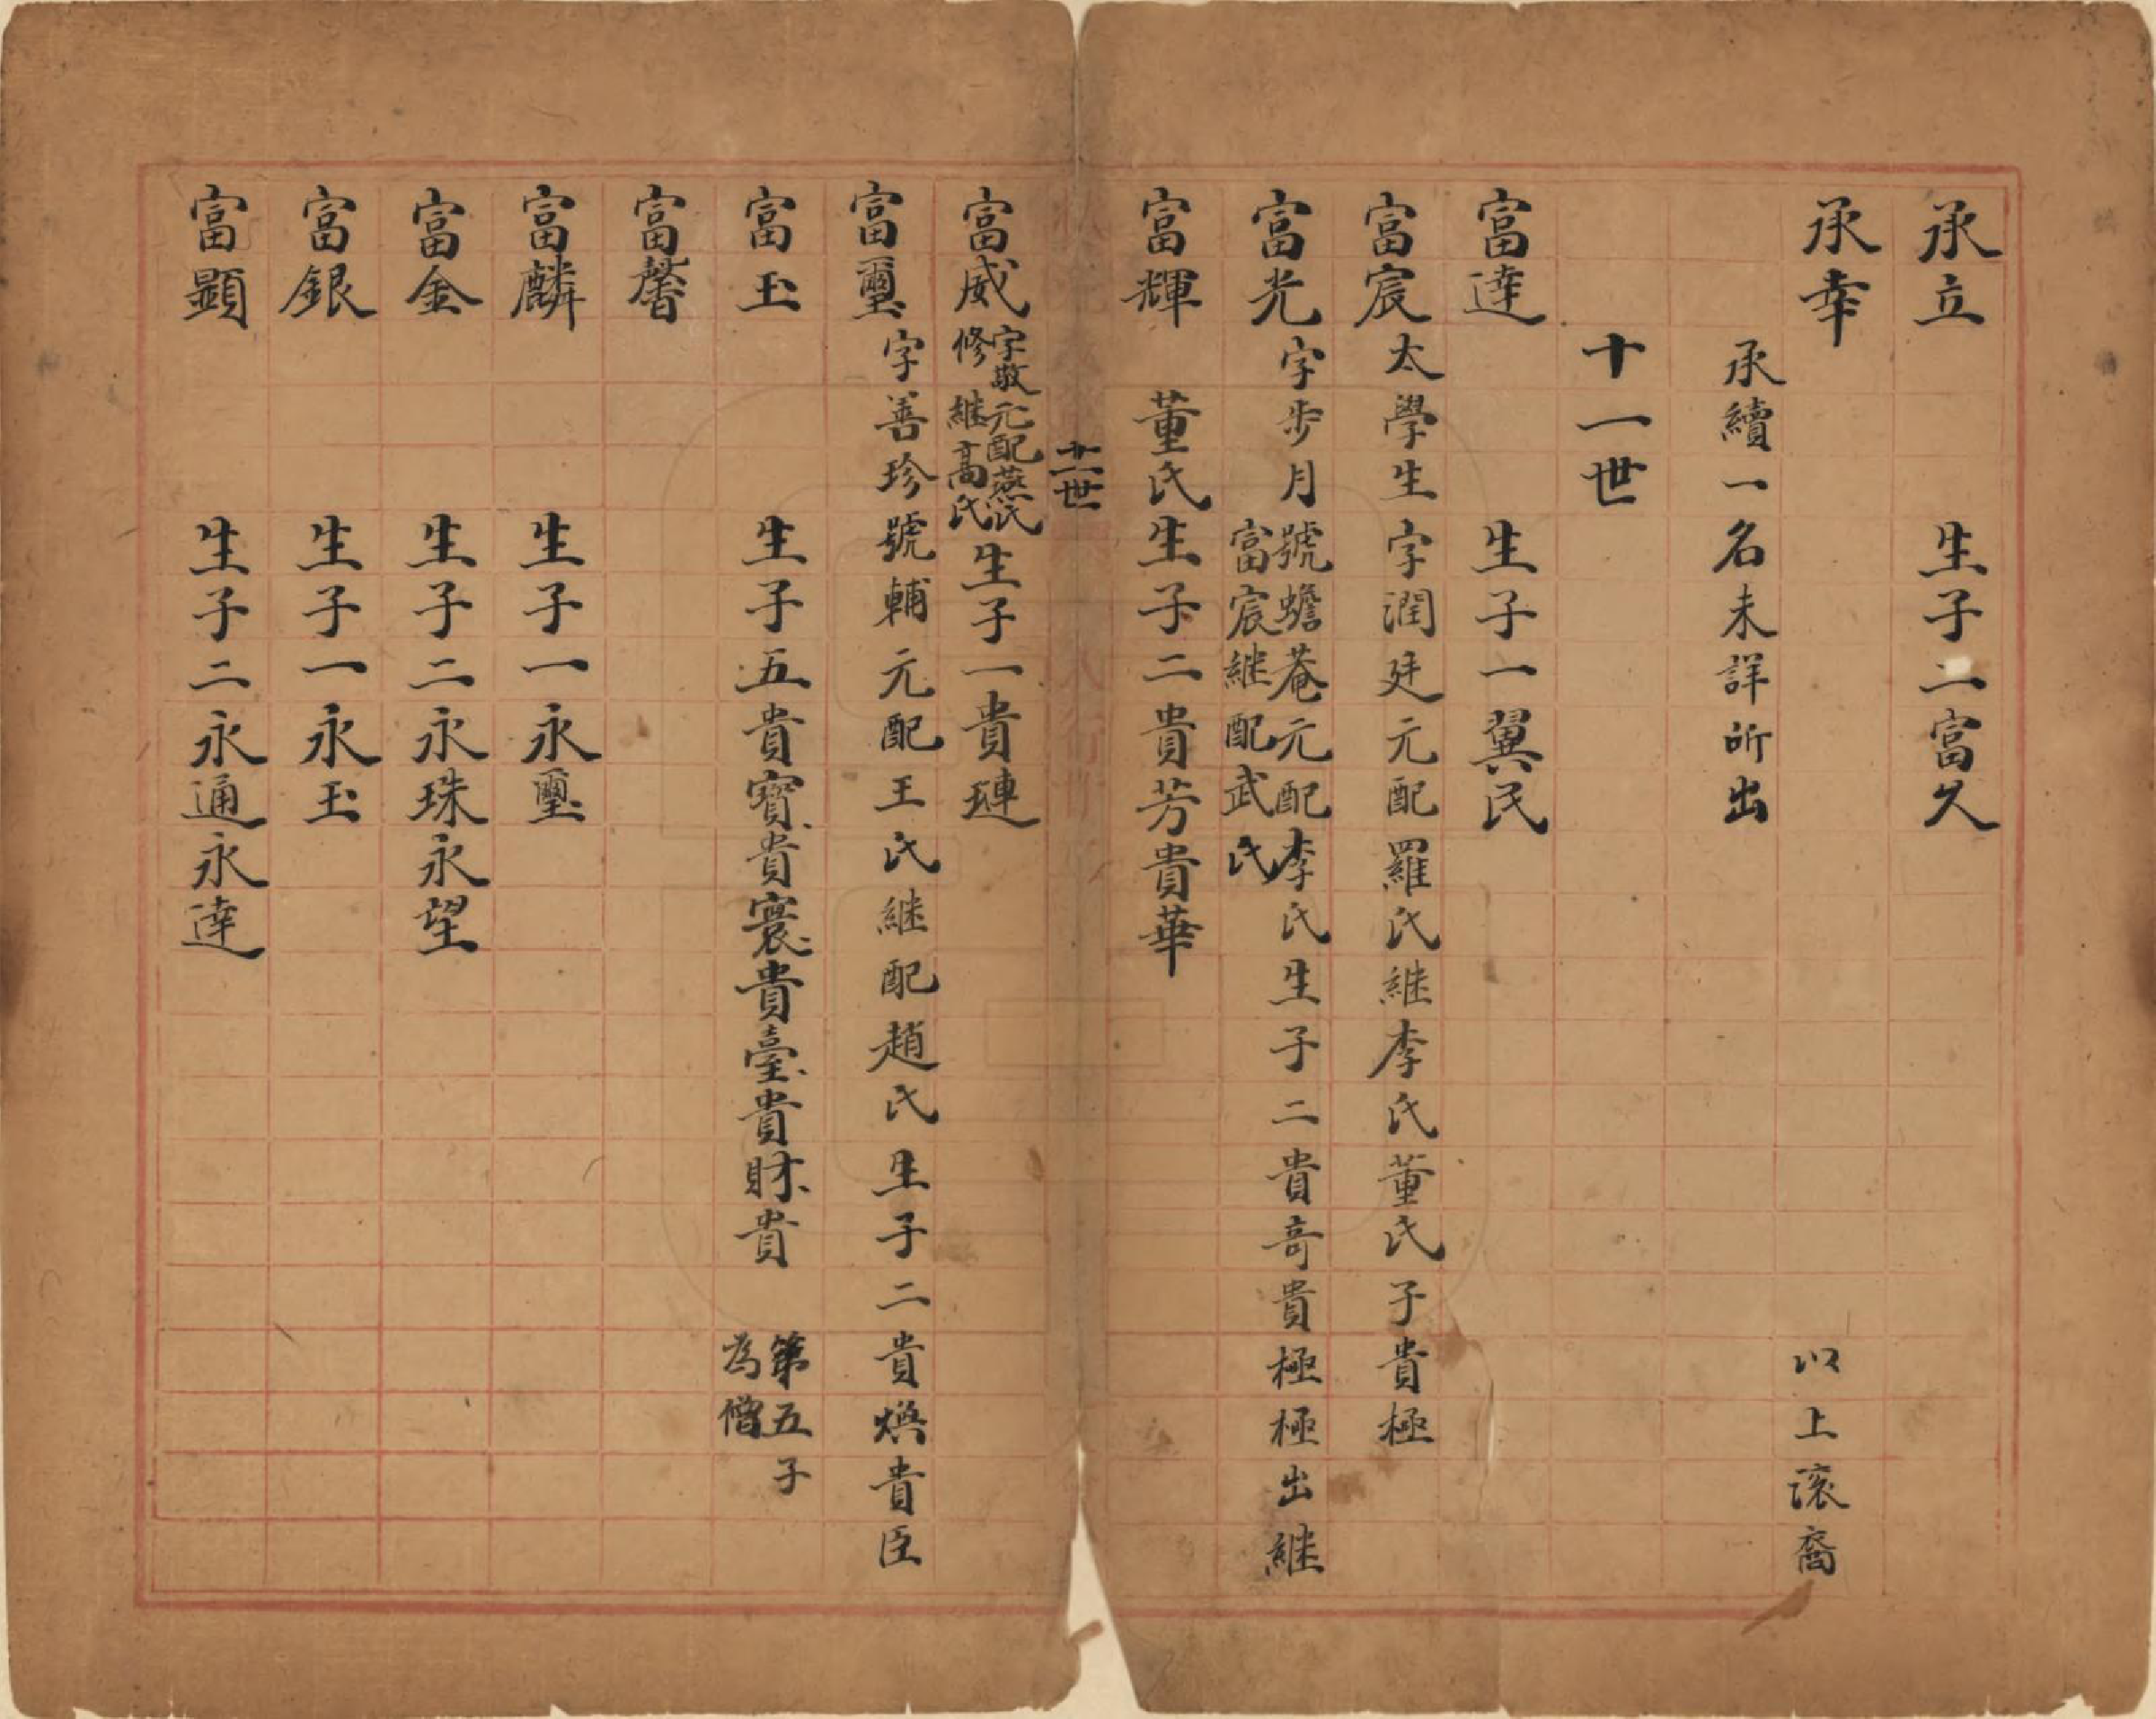 承立　生子二富久
承幸　以上滚裔
承續一名未詳所出
十一世
富達　生子一翼民
富宸　太學生字潤廷元配羅氏継李氏董氏子貴極
富光　字步月號蟾菴元配李氏生子二貴奇貴極極出継
富宸継配武氏
富輝　董氏生子二貴芳貴華
十一世
富威　字敬修元配燕氏継高氏生子一貴璉
富璽　字善珍號輔元配王氏継配趙氏生子二貴燠貴臣
富玉　生子五貴寳貴寰貴臺貴財貴　第五子為僧
富馨
富麟　生子一永璽
富金　生子二永珠永望
富銀　生子一永玉
富顯　生子二永通永達